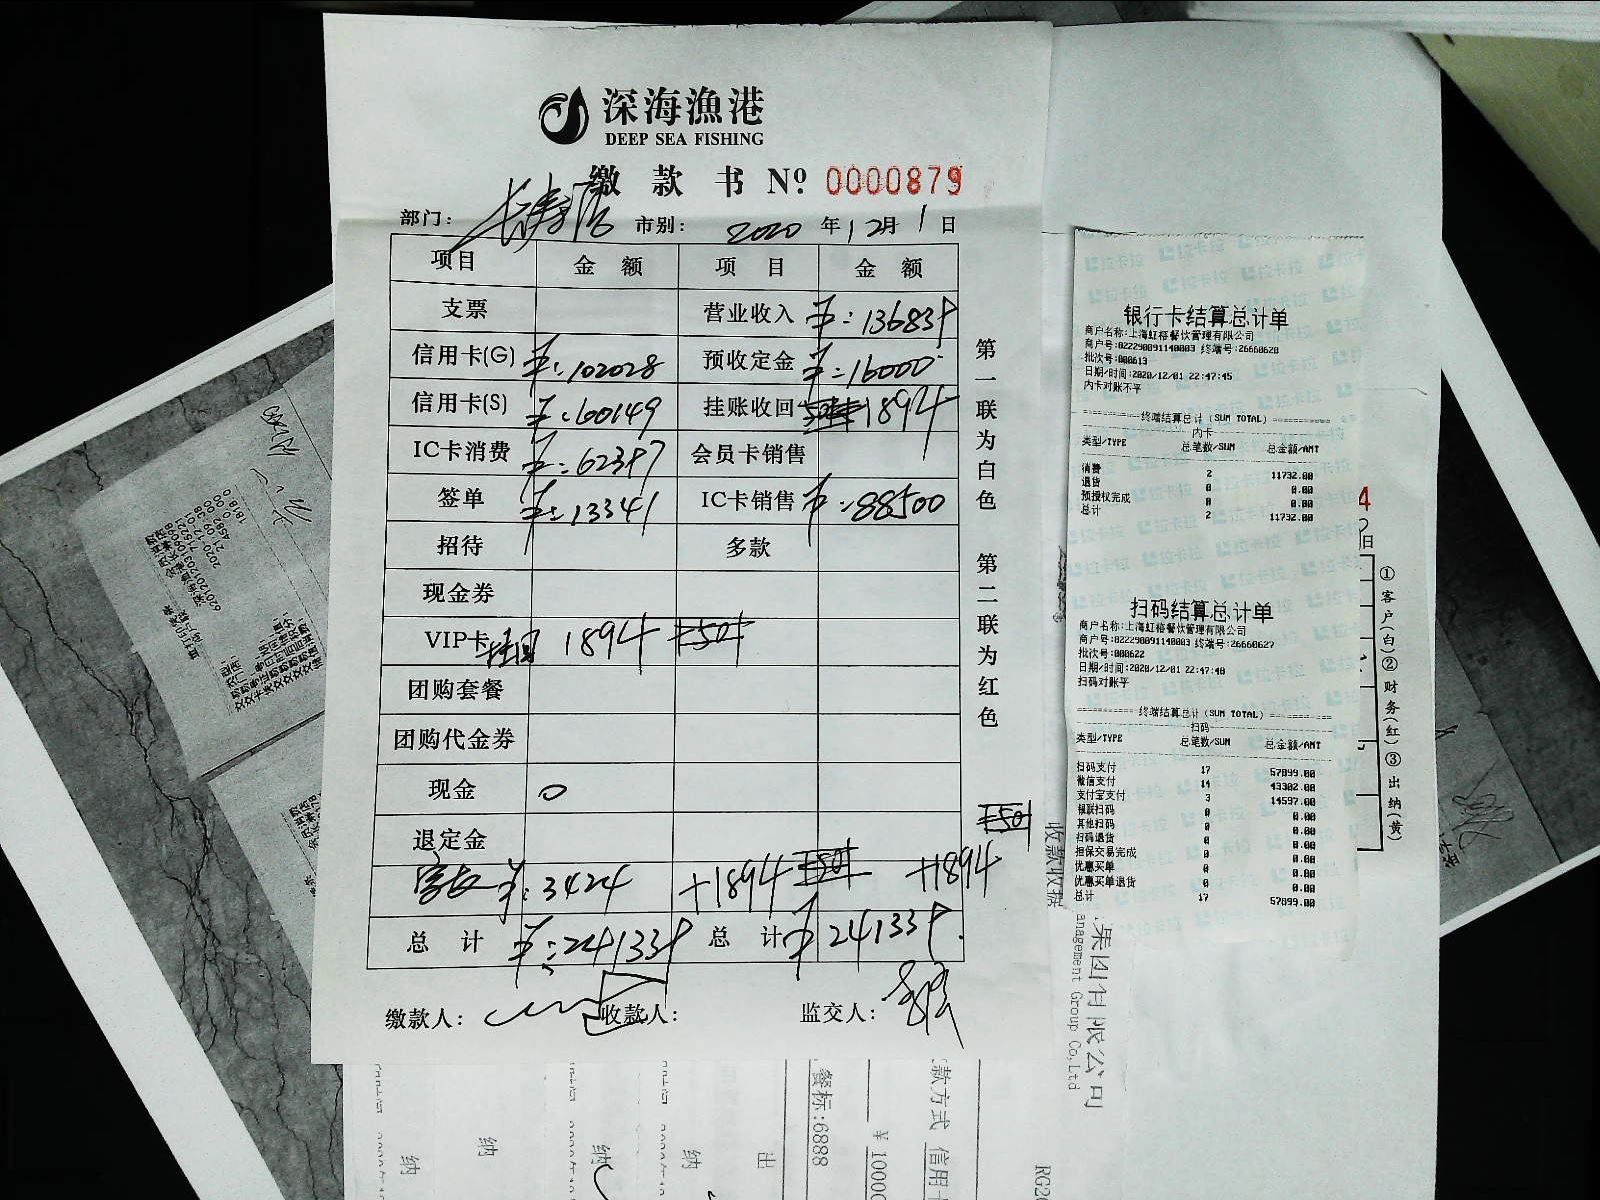 深海漁港
DEEP SEA FISHING
缴 款 书 Nº 0000879
部门: 长寿店 市别: 2020 年 12月 1 日
项目 金 额 项 目 金 额
支票 营业收入 ¥:136839
信用卡(G) ¥:102028 预收定金 ¥:16000
信用卡(S) 挂账收回 1894
IC卡消费 会员卡销售
签单 ¥:13341 IC卡销售 ¥:88500
招待 多款
现金券
VIP卡 挂回 1894
团购套餐
团购代金券
现金 0
退定金
¥:3424 +1894 +1894
总 计 ¥:241339 总 计 ¥241339.
缴款人: 收款人: 监交人:
第一联为白色 第二联为红色
银行卡结算总计单
商户名称:上海虹榕餐饮管理有限公司
商户号:822290091140003 终端号:26660628
批次号:000613
日期/时间:2020/12/01 22:47:45
内卡对账不平
终端结算总计(SUM TOTAL)
内卡
类型/TYPE 总笔数/SUM 总金额/AMT
消费 2 11732.00
退货 0 0.00
预授权完成 0 0.00
总计 2 11732.00
扫码结算总计单
商户名称:上海虹榕餐饮管理有限公司
商户号:822290091140003 终端号:26660627
批次号:000622
日期/时间:2020/12/01 22:47:40
扫码对账平
终端结算总计(SUM TOTAL)
扫码
类型/TYPE 总笔数/SUM 总金额/AMT
扫码支付 17 57899.00
微信支付 14 43302.00
支付宝支付 3 14597.00
银联扫码 0 0.00
其他扫码 0 0.00
扫码退货 0 0.00
担保交易完成 0 0.00
优惠买单 0 0.00
优惠买单退货 0 0.00
总计 17 57899.00
4
日
①客户(白)②财务(红)③出纳(黄)
收款收据
集团有限公司
anagement Group Co,Ltd
款方式 信用卡
餐标:6888